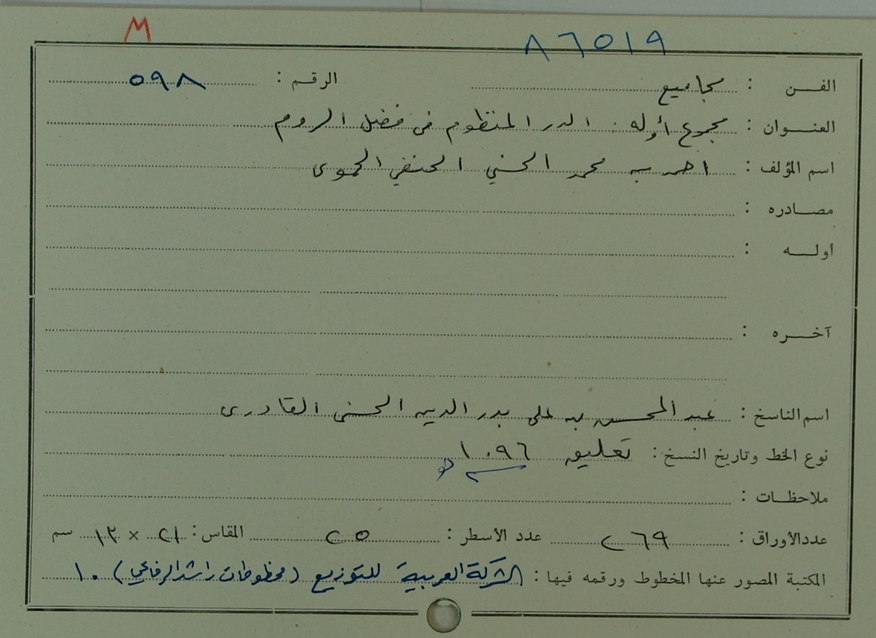 M
٨٦٥١٩
الفن : مجاميع الرقم : ٥٩٨
العنوان : مجموع أوله : الدر المنظوم في فضل الروم
اسم المؤلف : احمد بن محمد الحسني الحنفي الحموي
مصادره :
أوله :
آخره :
اسم الناسخ : عبد المحسن بن علي بدر الدين الحسني القادري
نوع الخط وتاريخ النسخ : تعليق ١٠٩٦ هـ
ملاحظات :
عدد الأوراق : ٢٦٩ عدد الأسطر : ٢٥ المقاس : ٢١ × ١٣ سم
المكتبة المصور عنها المخطوط ورقمه فيها : الشركة العربية للتوزيع (مخطوطات راشد الرفاعي) ١٠